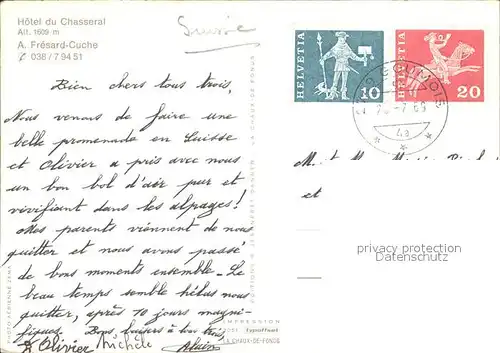 Hôtel du Chasseral
Alt. 1609 m
A. Frésard-Cuche
✆ 038/7 94 51
Suisse
HELVETIA 10
HELVETIA 20
GOUMOIS
Bien chers tous trois,
Nous venons de faire une
belle promenade en Suisse
et Olivier a pris avec nous
un bon bol d'air pur et
vivifiant dans les alpages!
Mes parents viennent de nous
quitter et nous avons passé
de bons moments ensemble. Le
beau temps semble hélas nous
quitter, après 10 jours magni-
fiques. Bons baisers à tous trois,
Olivier Michèle Alain
et
privacy protection
Datenschutz
PHOTO AÉRIENNE
IMPRESSION
LA CHAUX-DE-FONDS